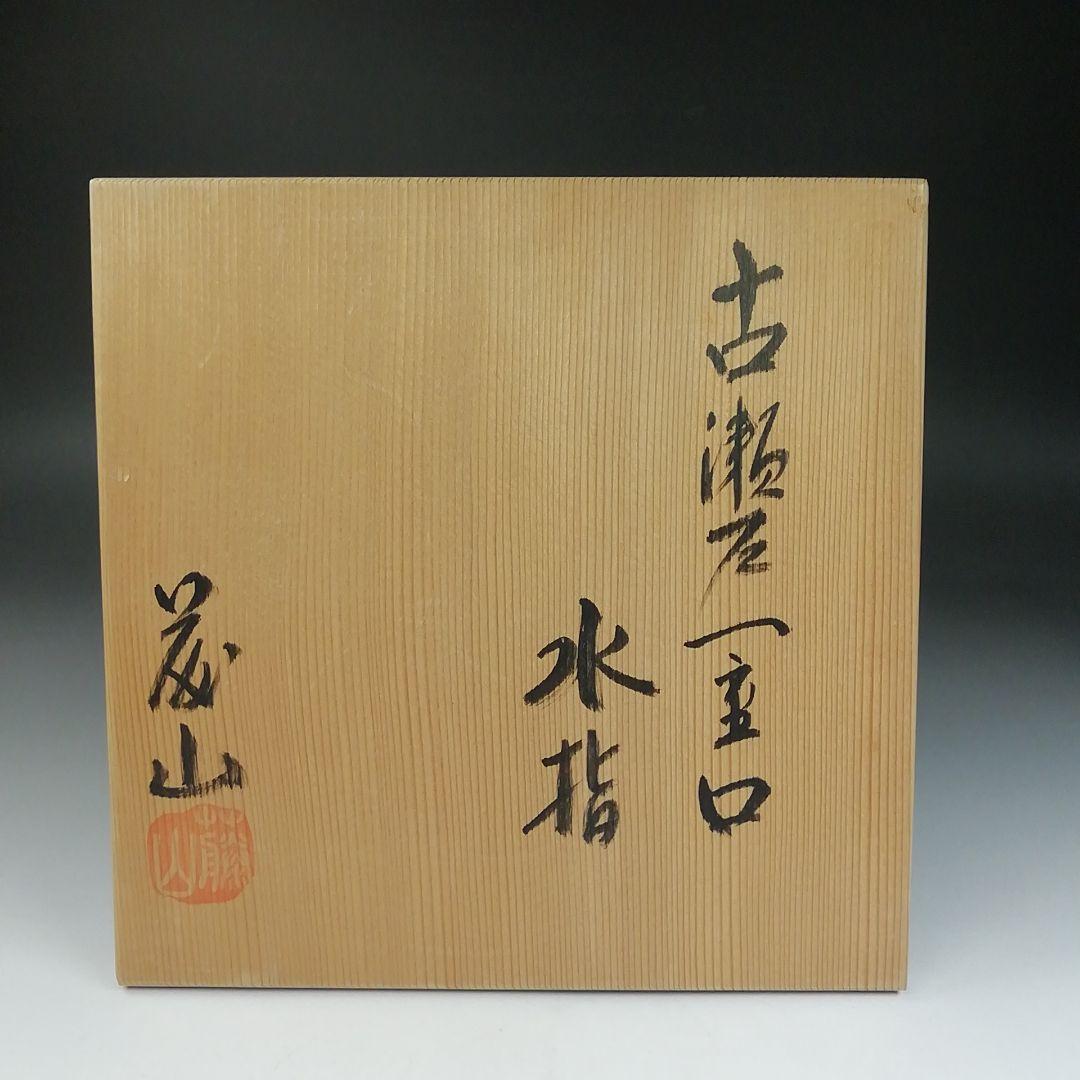 古瀬戸一重口
水指
茂山
藤山